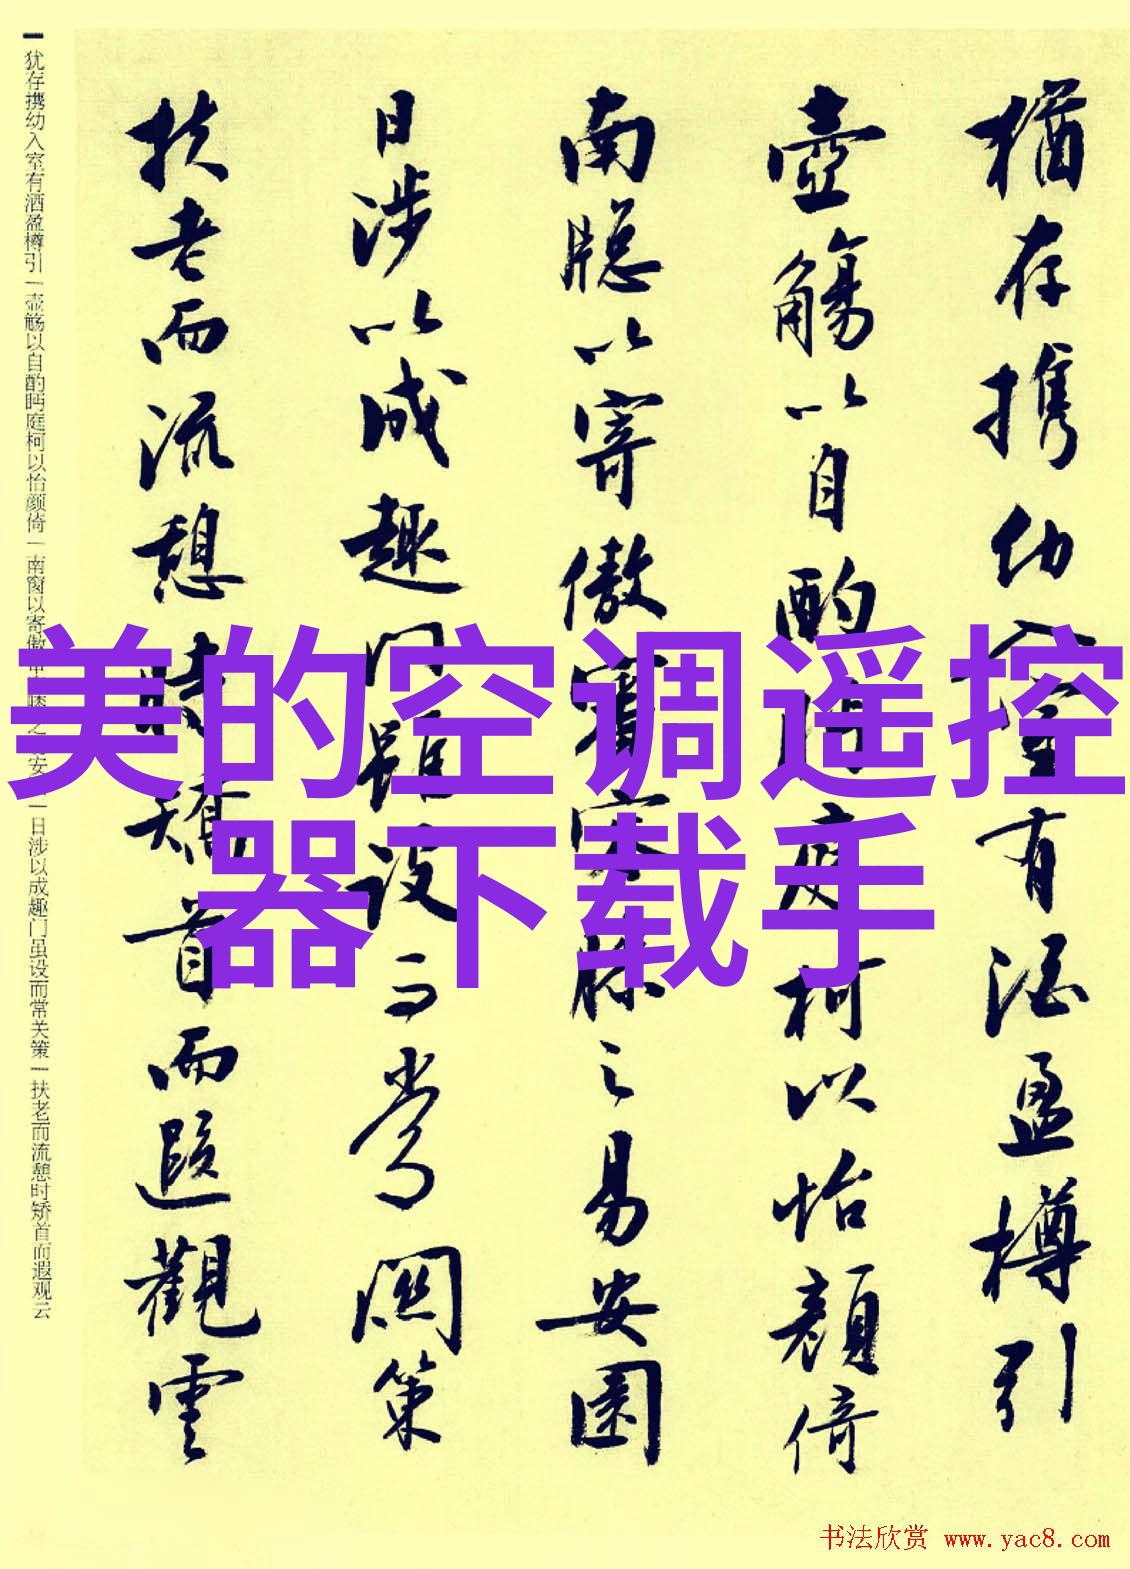 美的空调遥控
器下载手
猶存携幼入室有酒盈樽引
壺觴以自酌眄庭柯以怡顏倚
南牕以寄傲審容膝之易安園
日涉以成趣門雖設而常關策
扶老而流憩時矯首而遐觀雲
犹存携幼入室有洒盈樽引|壶觞以自酌眄庭柯以怡颜倚|南窗以寄傲审容膝之易安园|日涉以成趣门虽设而常关策|扶老而流憩时矫首而遐观云
书法欣赏 www.yac8.com